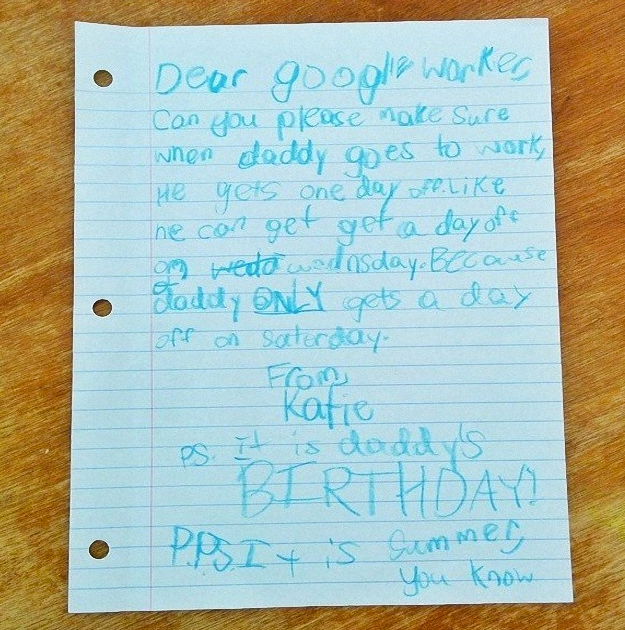 Dear google worker,
Can you please make sure
when daddy goes to work,
He gets one day off. Like
he can get get a day off
on wedo wednsday. Because
daddy ONLY gets a day
off on saturday.
From,
Katie
P.S. It is daddy's
BIRTHDAY!
P.P.S. It is summer,
you know